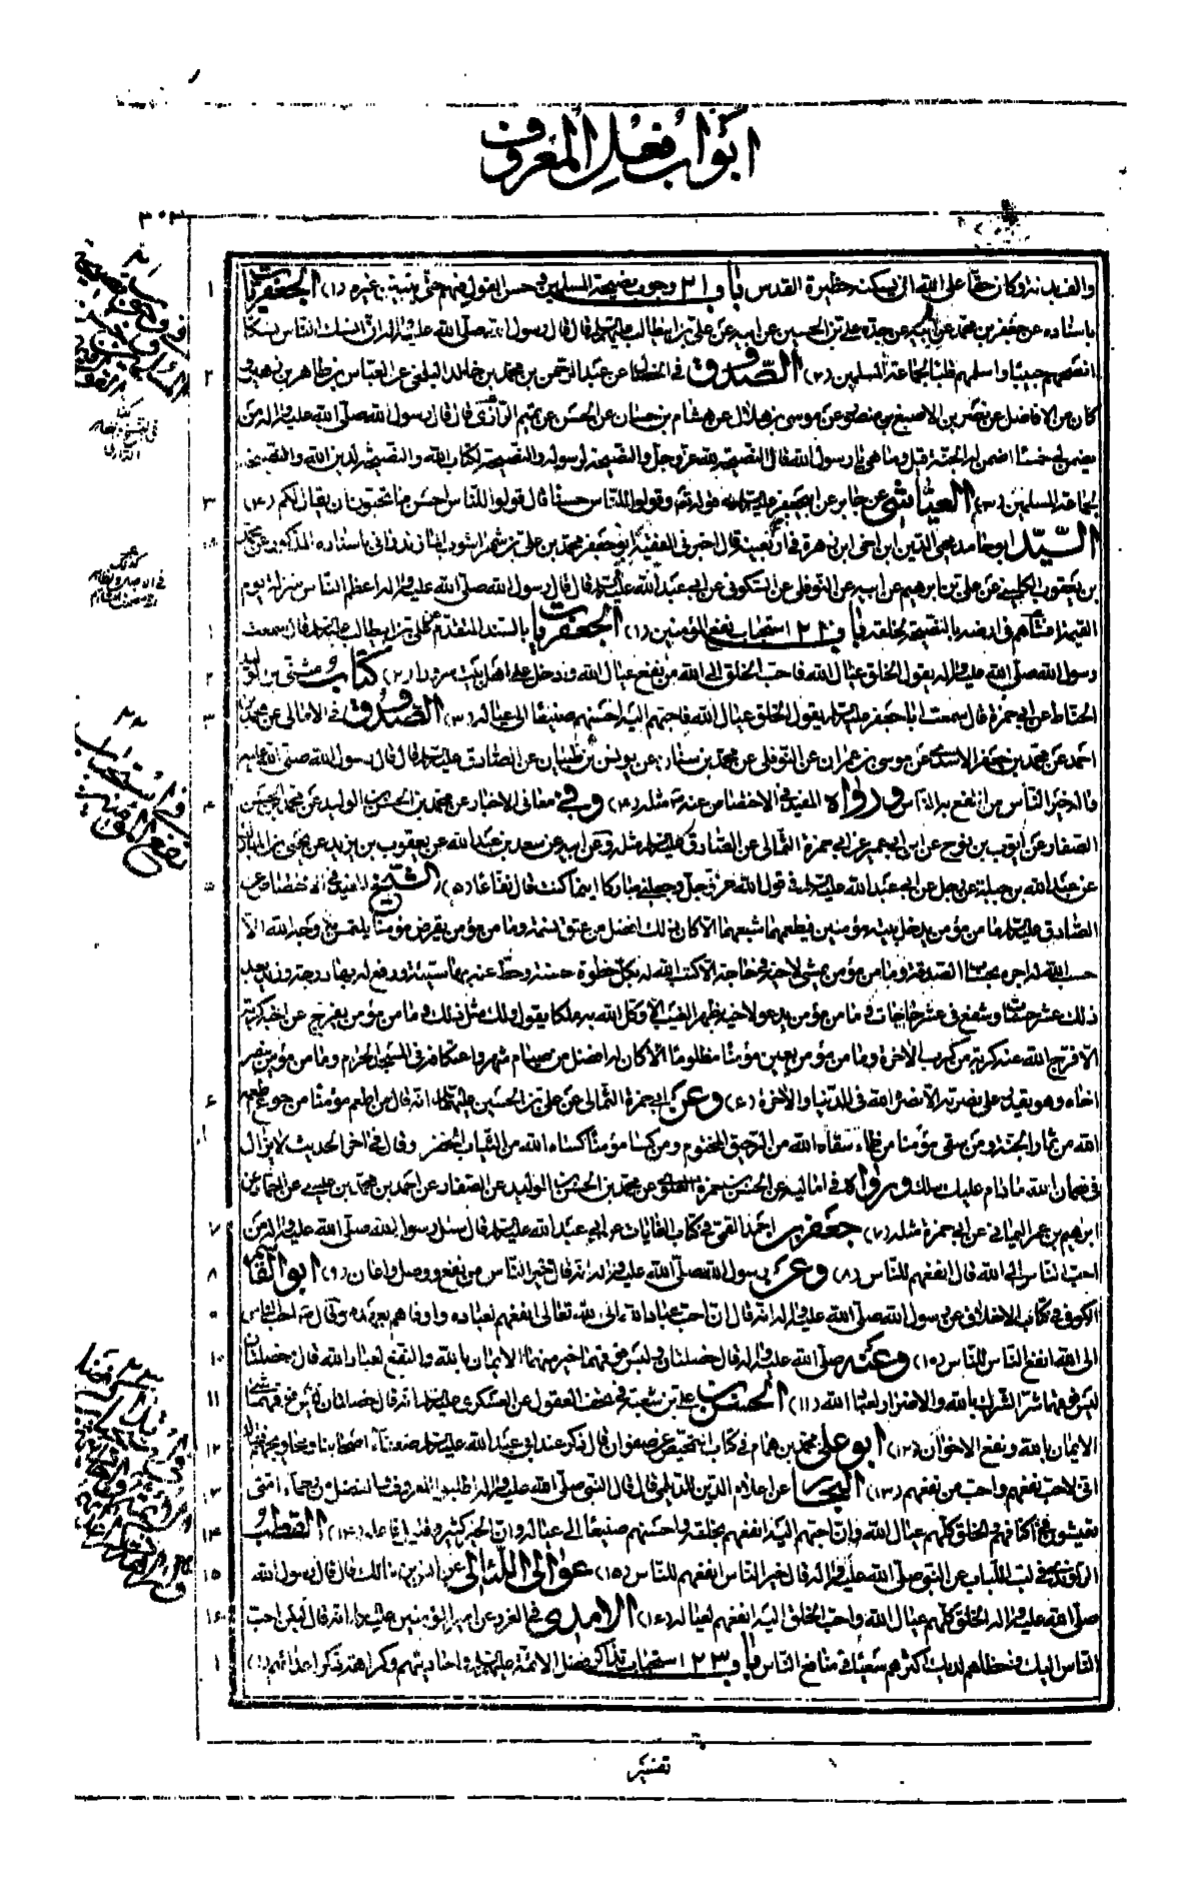 ابواب فعل المعروف
٣٠٣
والف بدنة وكان حقا على الله ان يسكنه حظيرة القدس باب ٢١ وجوب نصيحة المسلمين وحسن القول فيهم حتى يتبين غيره (١) الجعفريات
باسناده عن جعفر بن محمد عن ابيه عن جده علي بن الحسين عن ابيه عن علي بن ابيطالب قال قال رسول الله صلى الله عليه واله ان انسك الناس نسكا
انصحهم جيبا واسلمهم قلبا لجماعة المسلمين (٢) الصدوق في الخصال عن عبد الرحمن بن محمد بن خالد البلخي عن العباس بن طاهر بن ظهير
كان من الافاضل عن نصر بن الاصبغ بن منصور عن موسى بن هلال عن هشام بن حسان عن الحسن عن تميم الرازى قال قال رسول الله صلى الله عليه واله من
يضمن لي خمسا اضمن له الجنة قيل وما هي يا رسول الله قال النصيحة لله عز وجل والنصيحة لرسوله والنصيحة لكتاب الله والنصيحة لدين الله والنصيحة
لجماعة المسلمين (٣) العياشي عن جابر عن ابيجعفر في قوله تعالى وقولوا للناس حسنا قال قولوا للناس احسن ما تحبون ان يقال لكم (٤)
السيد ابو حامد محيى الدين ابن اخي ابن زهرة في اربعينه قال اخبرني الفقيه ابو جعفر محمد بن علي بن شهر اشوب المازندراني باسناده المذكور عن محمد
بن يعقوب الكليني عن علي بن ابراهيم عن ابيه عن النوفلي عن السكوني عن ابي عبد الله قال قال رسول الله صلى الله عليه واله اعظم الناس منزلة يوم
القيمة امشاهم في ارضه بالنصيحة لخلقه باب ٢٢ استحباب نفع المؤمنين (١) الجعفريات بالسند المتقدم عن علي بن ابيطالب قال سمعت
رسول الله صلى الله عليه واله يقول الخلق عيال الله فاحب الخلق الى الله من نفع عيال الله وادخل على اهل بيت سرورا (٢) كتاب مثنى بن الوليد
الحناط عن ابي حمزة قال سمعت ابا جعفر يقول الخلق عيال الله فاحبهم اليه احسنهم صنيعا الى عياله (٣) الصدوق في الامالى عن محمد بن
احمد عن محمد بن جعفر الاسدي عن موسى بن عمران عن النوفلي عن محمد بن سنان عن يونس بن ظبيان عن الصادق قال قال رسول الله صلى الله عليه
واله خير الناس من انتفع به الناس ورواه المفيد في الاختصاص عنه مثله (٤) وفي معاني الاخبار عن محمد بن الحسن بن الوليد عن محمد بن الحسن
الصفار عن ايوب بن نوح عن ابن ابي عمير عن ابي حمزة الثمالي عن الصادق مثله وعن ابيه عن سعد بن عبد الله عن يعقوب بن يزيد عن يحيى بن المبارك
عن عبد الله بن جبلة عن رجل عن ابي عبد الله في قول الله عز وجل وجعلني مباركا اينما كنت قال نفاعا (٥) الشيخ المفيد في الاختصاص عن
الصادق ما من مؤمن يدخل بيته مؤمنين فيطعمهما شبعهما الا كان ذلك افضل من عتق نسمة وما من مؤمن يقرض مؤمنا يلتمس به وجه الله الا
حسب الله له اجره بحساب الصدقة وما من مؤمن يمشي لاخيه في حاجة الا كتب الله له بكل خطوة حسنة وحط عنه بها سيئة ورفع له بها درجة وزيد بعد
ذلك عشر حسنات وشفع في عشر حاجات وما من مؤمن يدعو لاخيه بظهر الغيب الا وكل الله به ملكا يقول ولك مثل ذلك وما من مؤمن يفرج عن اخيه كربة
الا فرج الله عنه كربة من كرب الاخرة وما من مؤمن يعين مؤمنا مظلوما الا كان له افضل من صيام شهر واعتكافه في المسجد الحرام وما من مؤمن ينصر
اخاه وهو يقدر على نصرته الا نصره الله في الدنيا والاخرة (٦) وعن ابي حمزة الثمالي عن علي بن الحسين انه قال من اطعم مؤمنا من جوع اطعمه
الله من ثمار الجنة ومن سقى مؤمنا من ظماء سقاه الله من الرحيق المختوم ومن كسا مؤمنا كساه الله من الثياب الخضر وقال في اخر الحديث لا يزال
في ضمان الله ما دام عليه سلك ورواه في اماليه عن الحسن بن حمزة العلوي عن محمد بن الحسن بن الوليد عن الصفار عن احمد بن محمد بن عيسى عن
ابراهيم بن عمر اليماني عن ابي حمزة مثله (٧) جعفر بن احمد القمي في كتاب الغايات عن ابي عبد الله قال سئل رسول الله صلى الله عليه واله من
احب الناس الى الله قال انفعهم للناس (٨) وعن رسول الله صلى الله عليه واله انه قال خير الناس من نفع ووصل واعان (٩) ابو القاسم
الكوفي في كتاب الاخلاق عن رسول الله صلى الله عليه واله انه قال ان احب عباد الله الى الله تعالى انفعهم لعباده واوفاهم بعهده وقال احب الناس
الى الله انفع الناس للناس (١٠) وعنه صلى الله عليه واله قال خصلتان وليس فوقهما خير منهما الايمان بالله والنفع لعباد الله قال وخصلتان
ليس فوقهما شر الشرك بالله والاضرار لعباد الله (١١) الحسن بن علي بن شعبة في تحف العقول عن العسكري انه قال خصلتان ليس فوقهما شيء
الايمان بالله ونفع الاخوان (١٢) ابو علي محمد بن همام في كتاب التمحيص عن صفوان قال ذكر عند ابي عبد الله ضعفاء اصحابنا ومحاويجهم فقال
اني لاحب نفعهم واحب من نفعهم (١٣) البحار عن اعلام الدين للديلمي قال قال النبي صلى الله عليه واله اطلبوا المعروف والفضل من رحماء امتي
تعيشوا في اكنافهم والخلق كلهم عيال الله وان احبهم اليه انفعهم لخلقه واحسنهم صنيعا الى عياله وان الخير كثير وقليل فاعله (١٤) القطب
الراوندي في لب اللباب عن النبي صلى الله عليه واله قال خير الناس انفعهم للناس (١٥) عوالي اللئالي عن انس بن مالك قال قال رسول الله
صلى الله عليه واله الخلق كلهم عيال الله واحب الخلق اليه انفعهم لعياله (١٦) الامدي في الغرر عن امير المؤمنين انه قال ليكن احب
الناس اليك واحظاهم لديك اكثرهم سعيا في منافع الناس باب ٢٣ استحباب تذاكر فضل الائمة واحاديثهم وكراهة ذكر اعدائهم (١)
تفسير